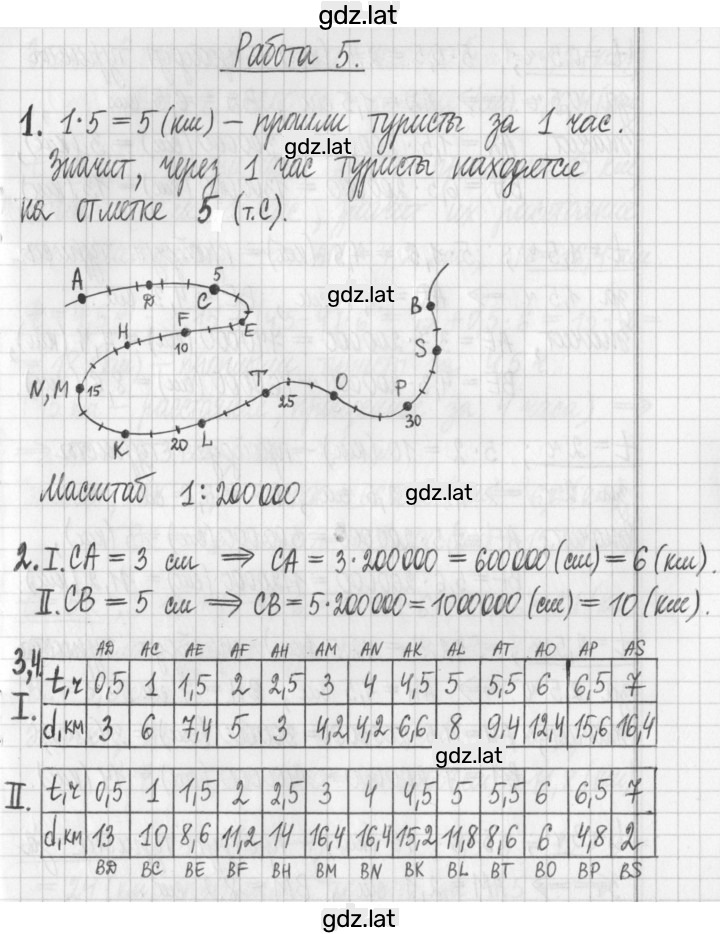 gdz.lat
Работа 5.
1. 1·5 = 5 (км) – прошли туристы за 1 час.
gdz.lat
Значит, через 1 час туристы находятся
на отметке 5 (т.С).
A D C 5 B
gdz.lat
H F E S
10
N, M 15 T 25 O P
30
K 20 L
Масштаб 1:200000
gdz.lat
2. I. CA = 3 см ⇒ CA = 3·200000 = 600000 (см) = 6 (км).
II. CB = 5 см ⇒ CB = 5·200000 = 1000000 (см) = 10 (км).
3,4.
AD AC AE AF AH AM AN AK AL AT AO AP AS
I. t,ч 0,5 1 1,5 2 2,5 3 4 4,5 5 5,5 6 6,5 7
d,км 3 6 7,4 5 3 4,2 4,2 6,6 8 9,4 12,4 15,6 16,4
gdz.lat
II. t,ч 0,5 1 1,5 2 2,5 3 4 4,5 5 5,5 6 6,5 7
d,км 13 10 8,6 11,2 14 16,4 16,4 15,2 11,8 8,6 6 4,8 2
BD BC BE BF BH BM BN BK BL BT BO BP BS
gdz.lat